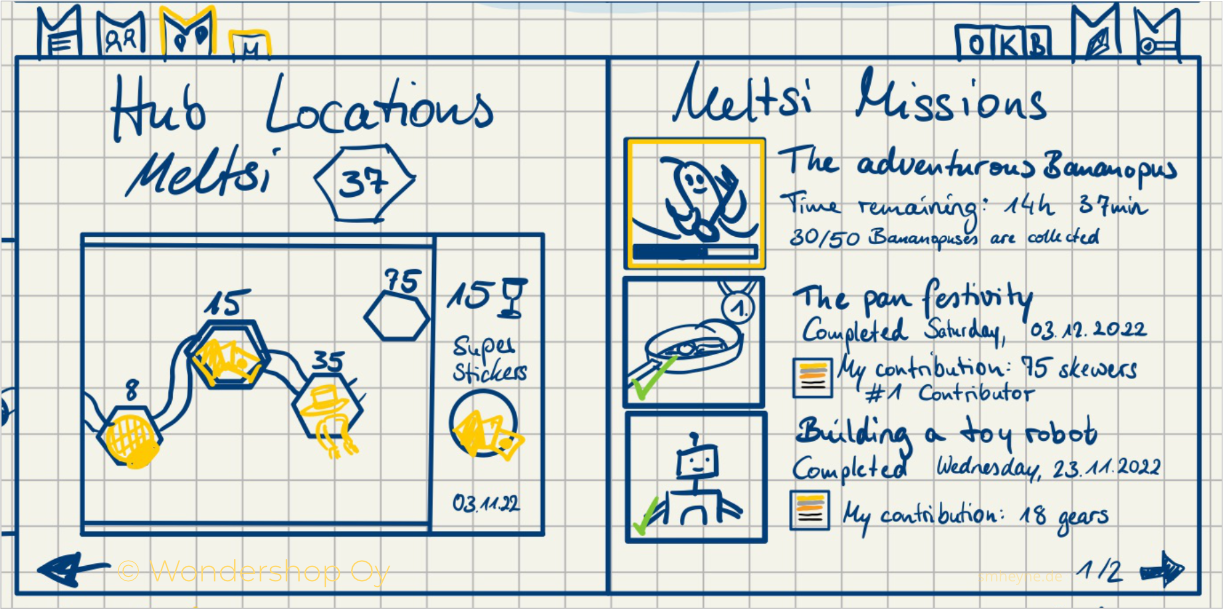 M
O K B
Hub Locations
Meltsi 37
75
15
35
8
15
Super
Stickers
03.11.22
© Wondershop Oy
Meltsi Missions
The adventurous Bananopus
Time remaining: 14h 37min
30/50 Bananopuses are collected
1.
The pan festivity
Completed Saturday, 03.12.2022
My contribution: 75 skewers
#1 Contributor
Building a toy robot
Completed Wednesday, 23.11.2022
My contribution: 18 gears
1/2